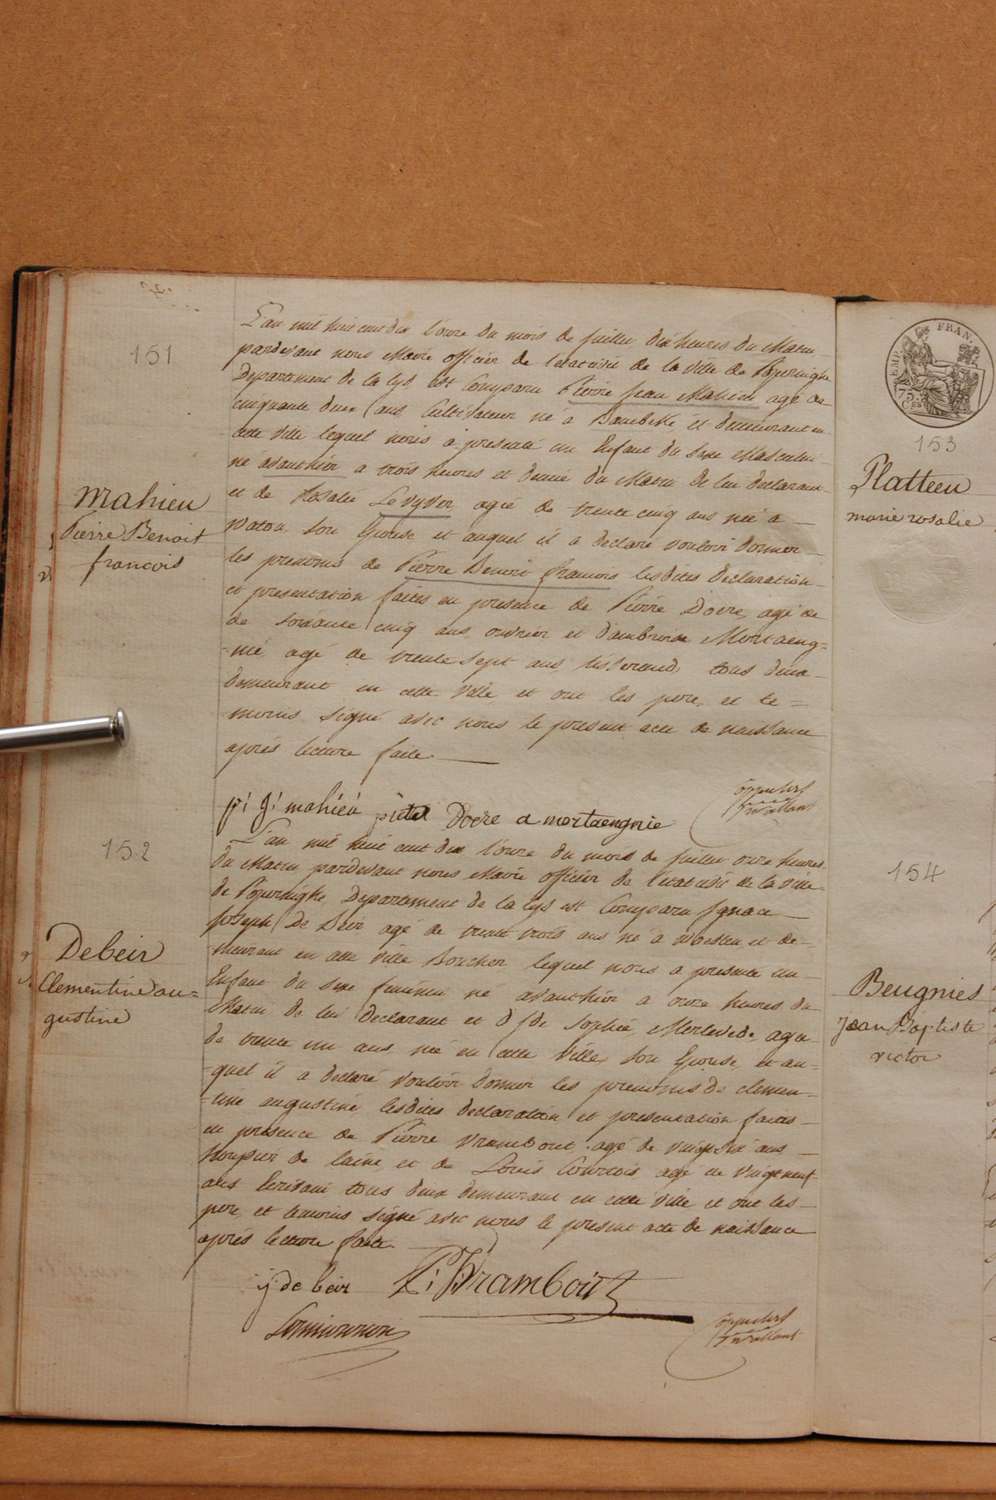 151
Mahieu
Pierre Benoit
francois
L'an mil huit cent dix l'onze du mois de Juillet dix heures du Matin
pardevant nous Maire officier de l'etat civil de la ville de Poperinghe
Departement de la Lys est Comparu Pierre Jean Mahieu agé de
cinquante deux ans Cultivateur né à Bambeke et demeurant en
cette ville lequel nous a presenté un Enfant du Sexe Masculin
né avanthier a trois heures et demie du Matin de lui declarant
et de Rosalie agée de trente cinq ans née a
Watou Son Epouse et auquel il a declaré vouloir donner
les prenoms de Pierre Benoit francois lesdites declaration
et presentation faites en presence de Pierre Doere, agé de
de Soixante cinq ans, ouvrier et d'ambroise Mortaeng=
=nie agé de trente sept ans tisserand tous deux
demeurant en cette ville, et ont les pere, et te=
moins signé avec nous le present acte de naissance
après lecture faite
p: j: mahieu Doere a mortaengnie
152
Debeir
Clementine au=
gustine
L'an mil huit cent dix l'onze du mois de Juillet onze heures
du Matin pardevant nous Maire officier de l'etat civil de la ville
de Poperinghe Departement de la Lys est Comparu Ignace
Joseph De Beir agé de trente trois ans né a Woesten et de-
meurant en cette ville Boucher lequel nous a presenté un
Enfant du sexe feminin né avanthier a onze heures du
Matin de lui declarant et de Sophie agée
de trente un ans, née en cette ville, son Epouse, et au-
quel il a declaré vouloir donner les prenoms de clemen-
-tine augustine lesdites declaration et presentation faites
en presence de Pierre Vrambout agé de vingt six ans
de laine, et de Louis Courtois agé de vingt neuf
ans Ecrivain tous deux demeurant en cette ville et ont les
pere, et temoins signé avec nous le present acte de naissance
après lecture faite
j: de beir P: Vrambout
153
Platteeu
marie rosalie
154
Beugnies
Jean Baptiste
victor